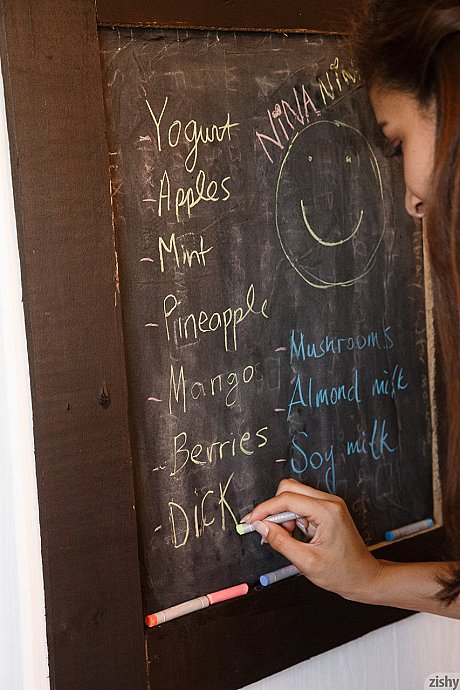 NINA NiN
- Yogurt
- Apples
- Mint
- Pineapple
- Mango
- Berries
- DICK
- Mushrooms
- Almond milk
- Soy milk
zishy